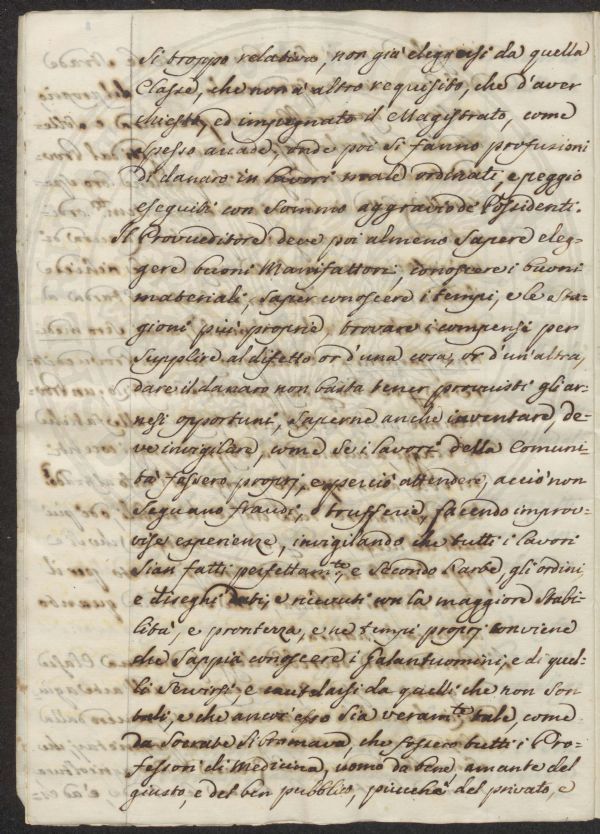 si troppo relativa, non già eleggersi da quella
Classe, che non à altro requisito, che d'aver
ed impegnato il Magistrato, come
spesso accade, onde poi si fanno profusioni
di danaro in lavori male ordinati, e peggio
eseguiti con sommo aggravio de Possidenti.
Il Provveditore deve poi almeno sapere eleg-
gere buoni Manifattori, conoscere i buoni
materiali, saper conoscere i tempi, e le sta-
gioni più proprie, trovare i compensi per
supplire al difetto or d'una cosa, or d'un'altra,
dare il danaro non basta tener provvisti gli ar-
nesi opportuni, saperne anche inventare, de-
ve invigilare, come se i lavori della Comuni-
tà fossero proprj, e perciò attendere, acciò non
seguano fraudi, o trufferie, facendo improv-
vise esperienze, invigilando che tutti i lavori
sian fatti perfettam.te, e secondo l'arte, gli ordini,
e disegni dati, e ricevuti con la maggiore stabi-
lità, e prontezza, e ne tempi proprj conviene
che sappia conoscere i Galantuomini, e di quel-
li servirsi, e cautelarsi da quelli che non son
tali, e che ancor esso sia veram.te tale, come
da Socrate si bramava, che fossero tutti i Pro-
fessori di Medicina, uomo da bene, amante del
giusto, e del ben pubblico, piucchè del privato, e